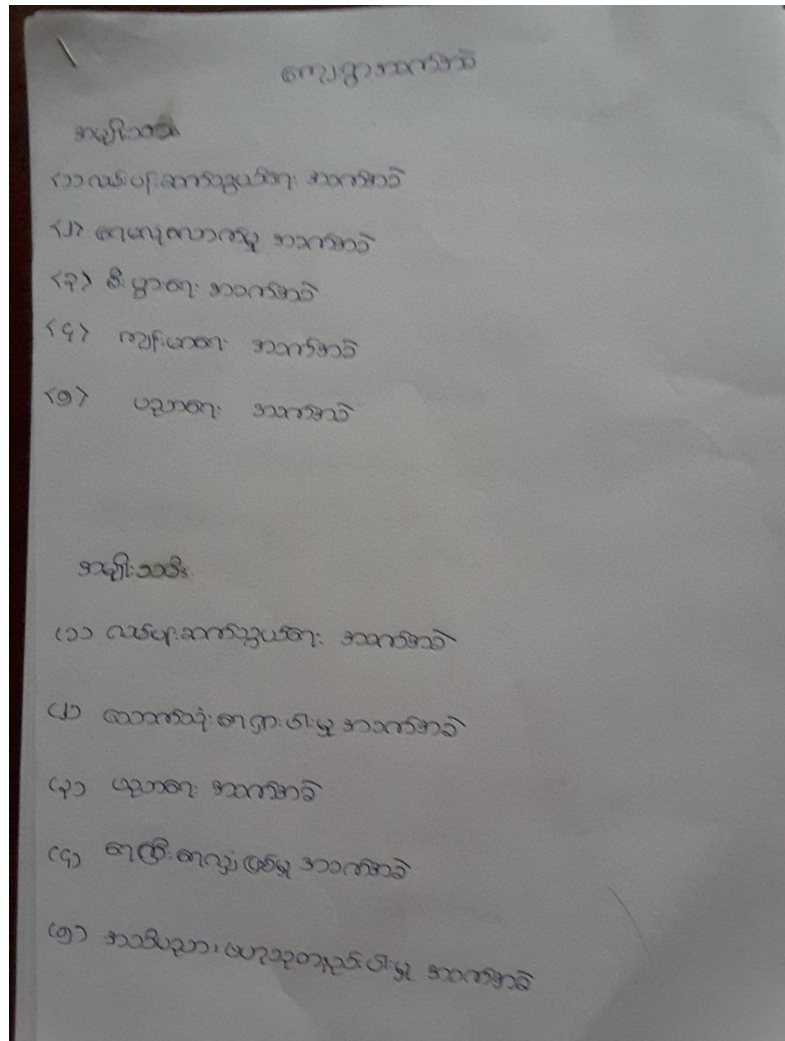 ကျေးရွာအခက်အခဲ
အမျိုးသား
(၁) လမ်းပန်းဆက်သွယ်ရေး အခက်အခဲ
(၂) ရေမလုံလောက်မှု အခက်အခဲ
(၃) စီးပွားရေး အခက်အခဲ
(၄) ကျန်းမာရေး အခက်အခဲ
(၅) ပညာရေး အခက်အခဲ
အမျိုးသမီး
(၁) လမ်းပန်းဆက်သွယ်ရေး အခက်အခဲ
(၂) သောက်သုံးရေရှားပါးမှု အခက်အခဲ
(၃) ပညာရေး အခက်အခဲ
(၄) ရေကြီးရေလျှံဖြစ်မှု အခက်အခဲ
(၅) အသိပညာ၊ ဗဟုသုတနည်းပါးမှု အခက်အခဲ